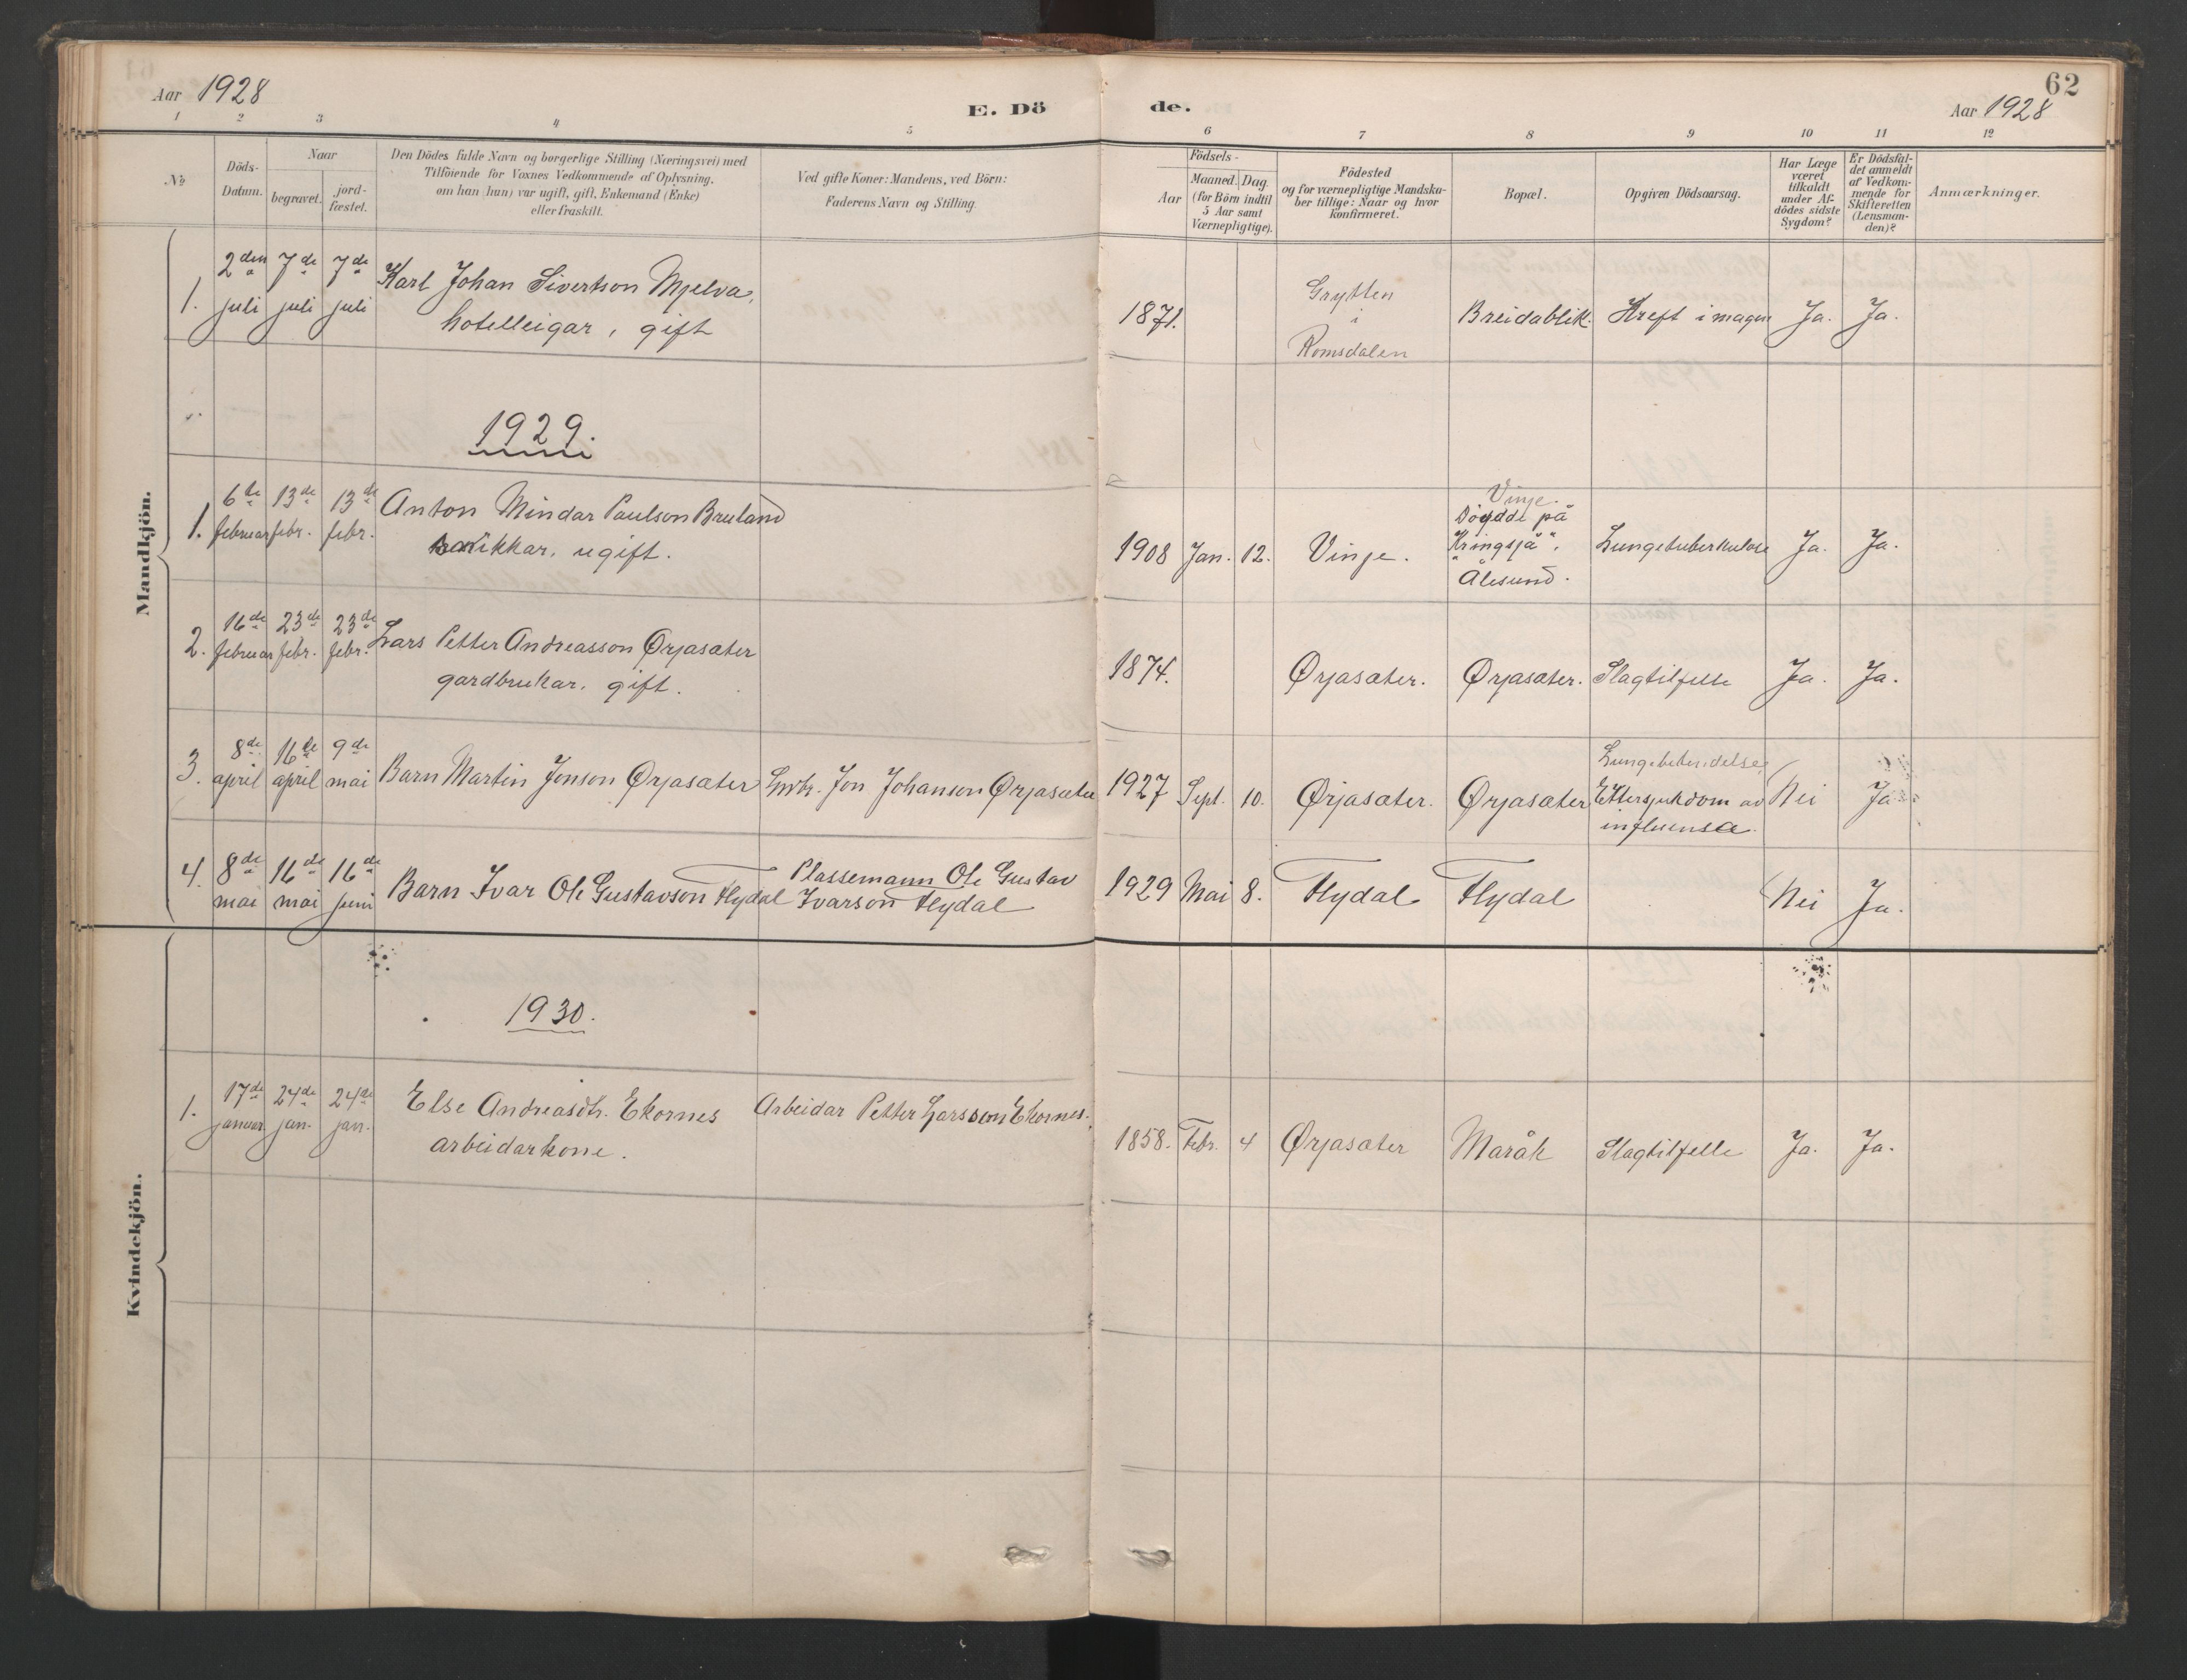 62
Aar 1928
E. Dö de.
Aar 1928
1 2 3 4 5 6 7 8 9 10 11 12
№
Döds-
Datum.
Naar
begravet.
jord-
fæstet.
Den Dödes fulde Navn og borgerlige Stilling (Næringsvei) med
Tilföiende for Voxnes Vedkommende af Oplysning.
om han (hun) var ugift, gift, Enkemand (Enke)
eller fraskilt.
Ved gifte Koner: Mandens, ved Börn:
Faderens Navn og Stilling.
Födsels-
Aar
Maaned. Dag.
(for Börn indtil
5 Aar samt
Værnepligtige).
Födested
og for værnepligtige Mandska-
ber tillige: Naar og hvor
konfirmeret.
Bopæl.
Opgiven Dödsaarsag.
Har Læge
været
tilkaldt
under Af-
dödes sidste
Sygdom?
Er Dödsfal-
det anmeldt
af Vedkom-
mende for
Skifteretten
(Lensman-
den)?
Anmærkninger.
Mandkjön.
1. 2den juli 7de juli 7de juli
Karl Johan Sivertson Mjelva,
hotelleigar, gift
1871.
Grytten
i
Romsdalen
Breidablik.
Kreft i magen
Ja. Ja.
1929.
1. 6te februar 13de febr. 13de febr.
Anton Mindar Paulson Bruland
snikkar, ugift.
1908 Jan. 12.
Vinje.
Vinje.
Döydde på
"Kringsjå",
Ålesund.
Lungetuberkulose
Ja. Ja.
2. 16de februar 23de febr. 23de febr.
Lars Petter Andreasson Ørjasæter
gardbrukar, gift.
1874.
Ørjasæter.
Ørjasæter.
Slagtilfelle
Ja. Ja.
3. 8de april 16de april 9de mai
Barn Martin Jonson Ørjasæter
Gardbr. Jon Johanson Ørjasæter
1927 Sept. 10.
Ørjasæter.
Ørjasæter
Lungebetendelse,
Ettersjukdom av
influensa.
Nei Ja
4. 8de mai 16de mai 16de juni
Barn Ivar Ole Gustavson Flydal
Plassemann Ole Gustav
Ivarson Flydal
1929 Mai 8.
Flydal
Flydal
Nei Ja.
Kvindekjön.
1930.
1. 17de januar 24de jan. 24de jan.
Else Andreasdtr. Ekornes
arbeidarkone.
Arbeidar Petter Larsson Ekornes.
1858. Febr. 4
Ørjasæter
Maråk
Slagtilfelle
Ja. Ja.